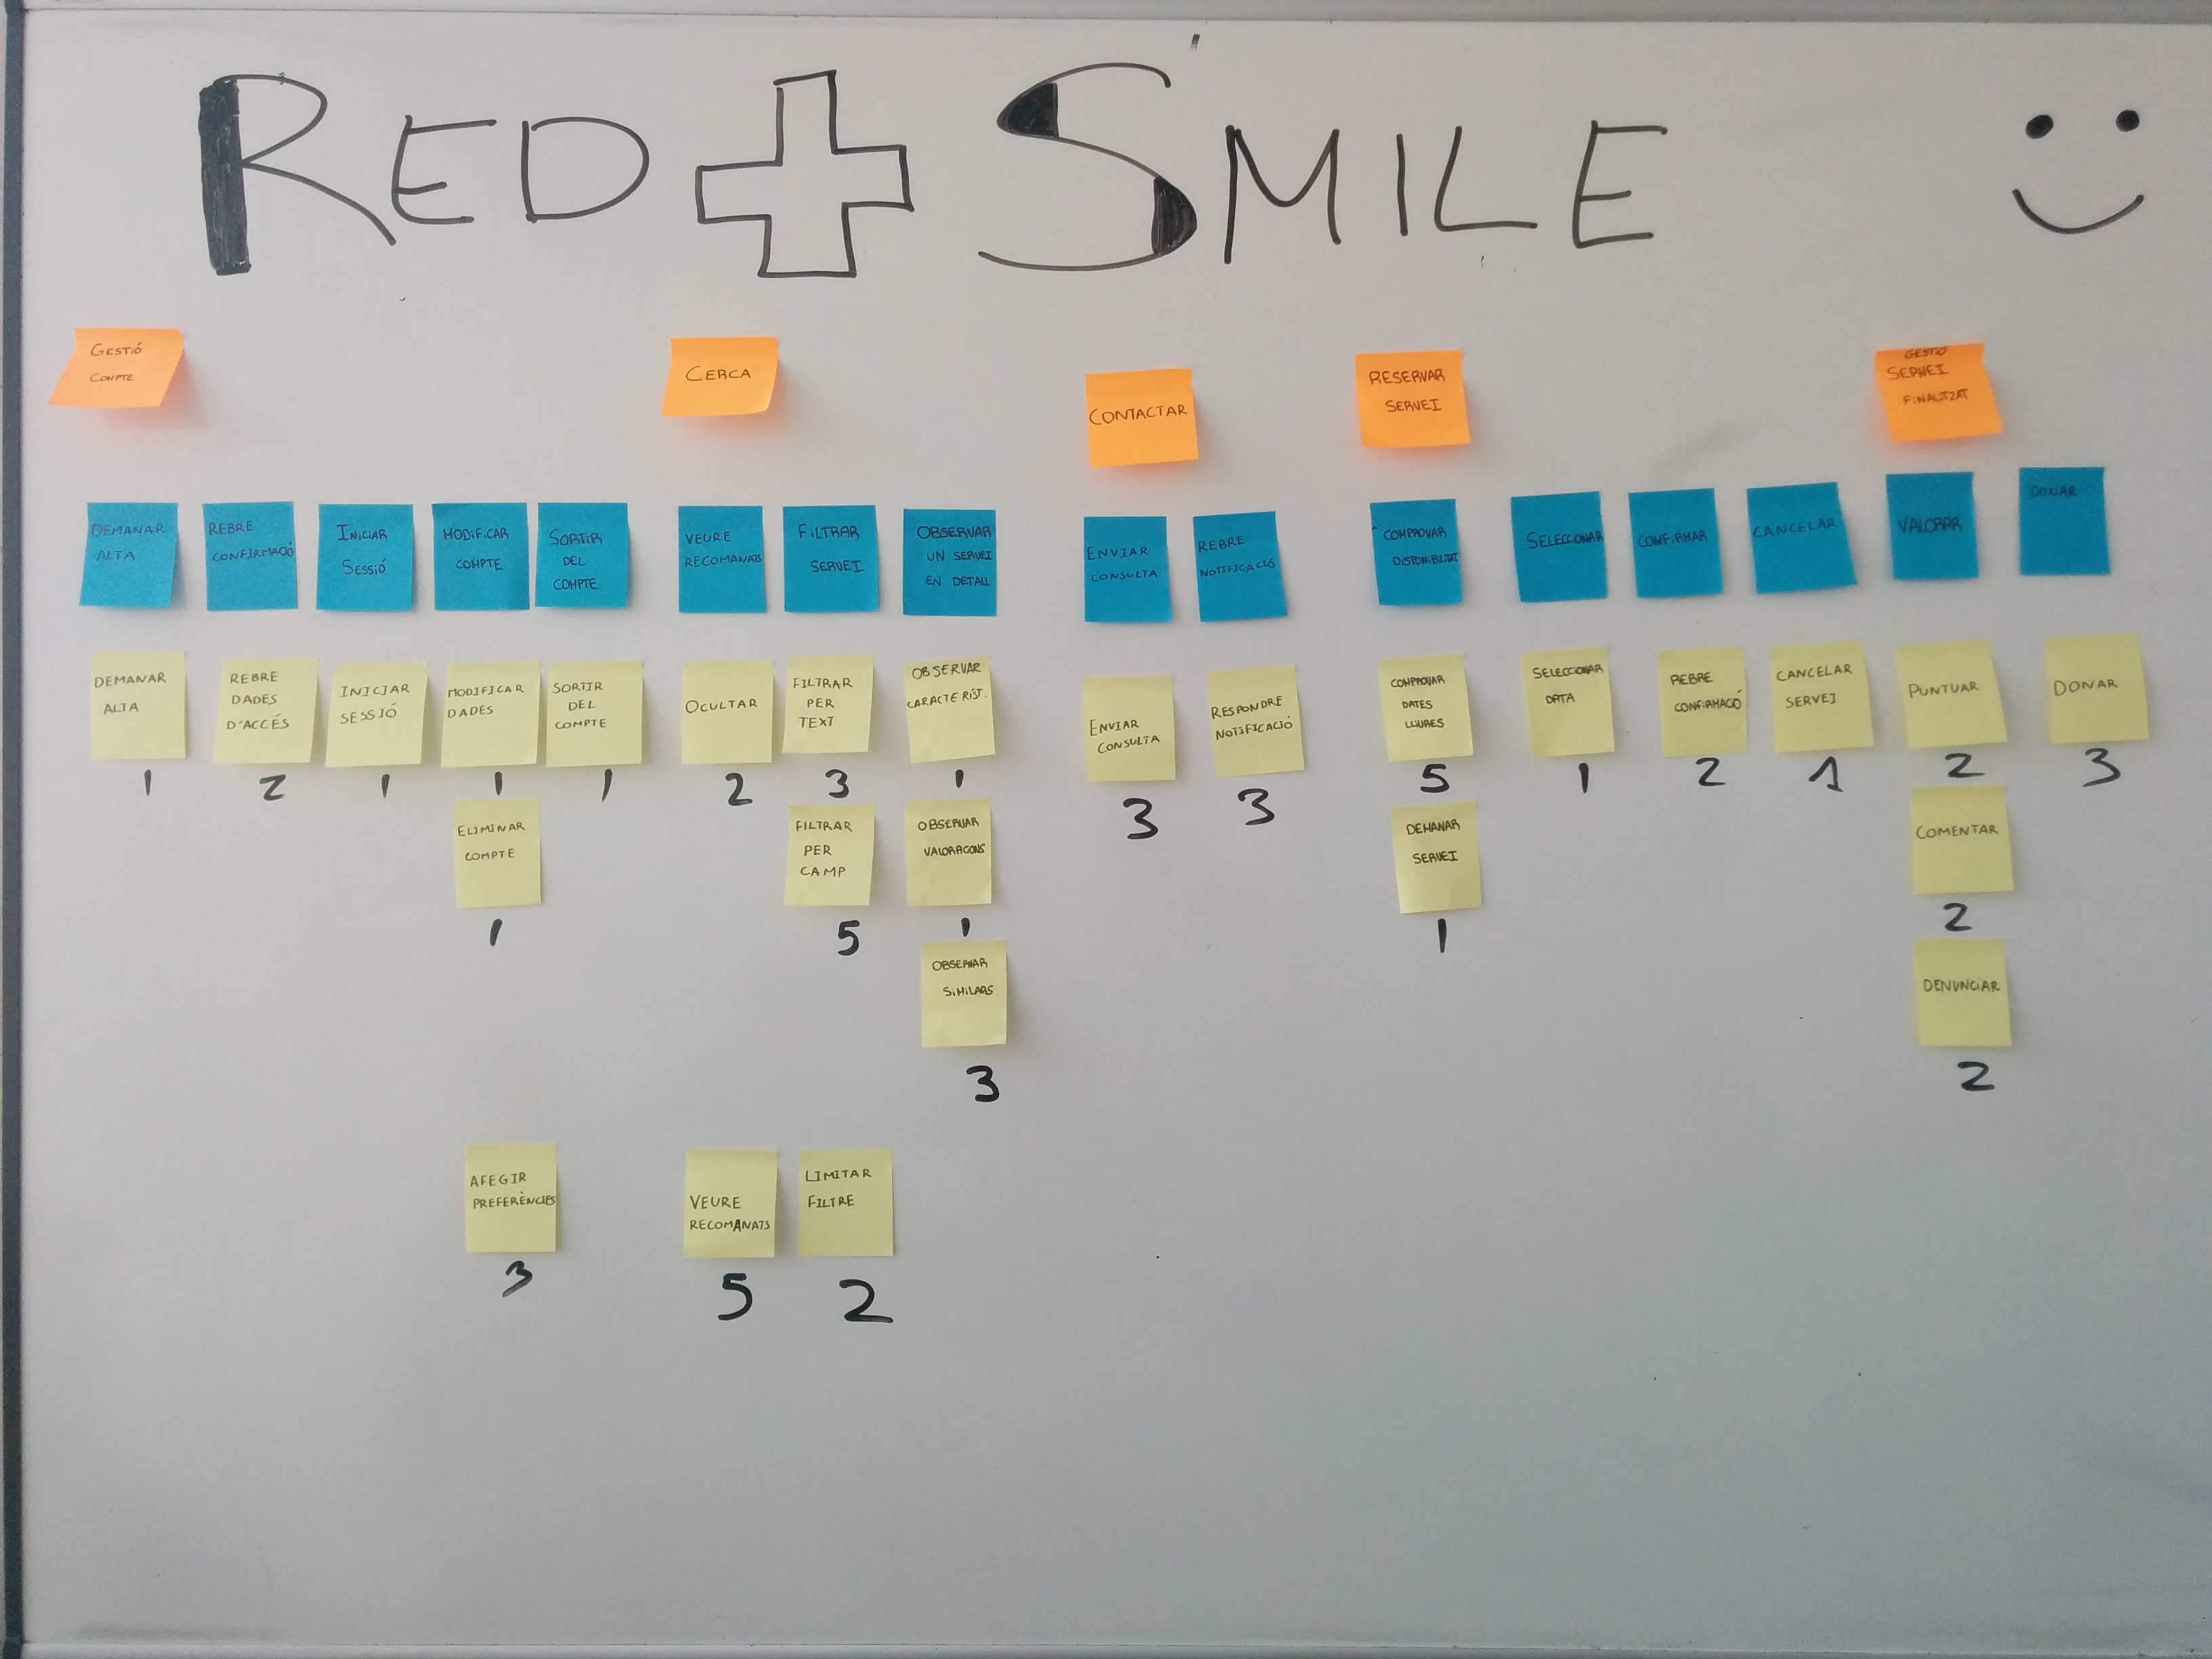 RED SMILE
GESTIÓ
COMPTE
CERCA
CONTACTAR
RESERVAR
SERVEI
GESTIÓ
SERVEI
FINALITZAT
DEMANAR
ALTA
REBRE
CONFIRMACIÓ
INICIAR
SESSIÓ
MODIFICAR
COMPTE
SORTIR
DEL
COMPTE
VEURE
RECOMANATS
FILTRAR
SERVEI
OBSERVAR
UN SERVEI
EN DETALL
ENVIAR
CONSULTA
REBRE
NOTIFICACIÓ
COMPROVAR
DISPONIBILITAT
SELECCIONAR
CONFIRMAR
CANCELAR
VALORAR
DONAR
DEMANAR
ALTA
1
REBRE
DADES
D'ACCÉS
2
INICIAR
SESSIÓ
1
MODIFICAR
DADES
1
SORTIR
DEL
COMPTE
1
OCULTAR
2
FILTRAR
PER
TEXT
3
OBSERVAR
CARACTERÍST.
1
ENVIAR
CONSULTA
3
RESPONDRE
NOTIFICACIÓ
3
COMPROVAR
DATES
LLIURES
5
SELECCIONAR
DATA
1
REBRE
CONFIRMACIÓ
2
CANCELAR
SERVEI
1
PUNTUAR
2
DONAR
3
ELIMINAR
COMPTE
1
FILTRAR
PER
CAMP
5
OBSERVAR
VALORACIONS
1
DEMANAR
SERVEI
1
COMENTAR
2
OBSERVAR
SIMILARS
3
DENUNCIAR
2
AFEGIR
PREFERÈNCIES
3
VEURE
RECOMANATS
5
LIMITAR
FILTRE
2